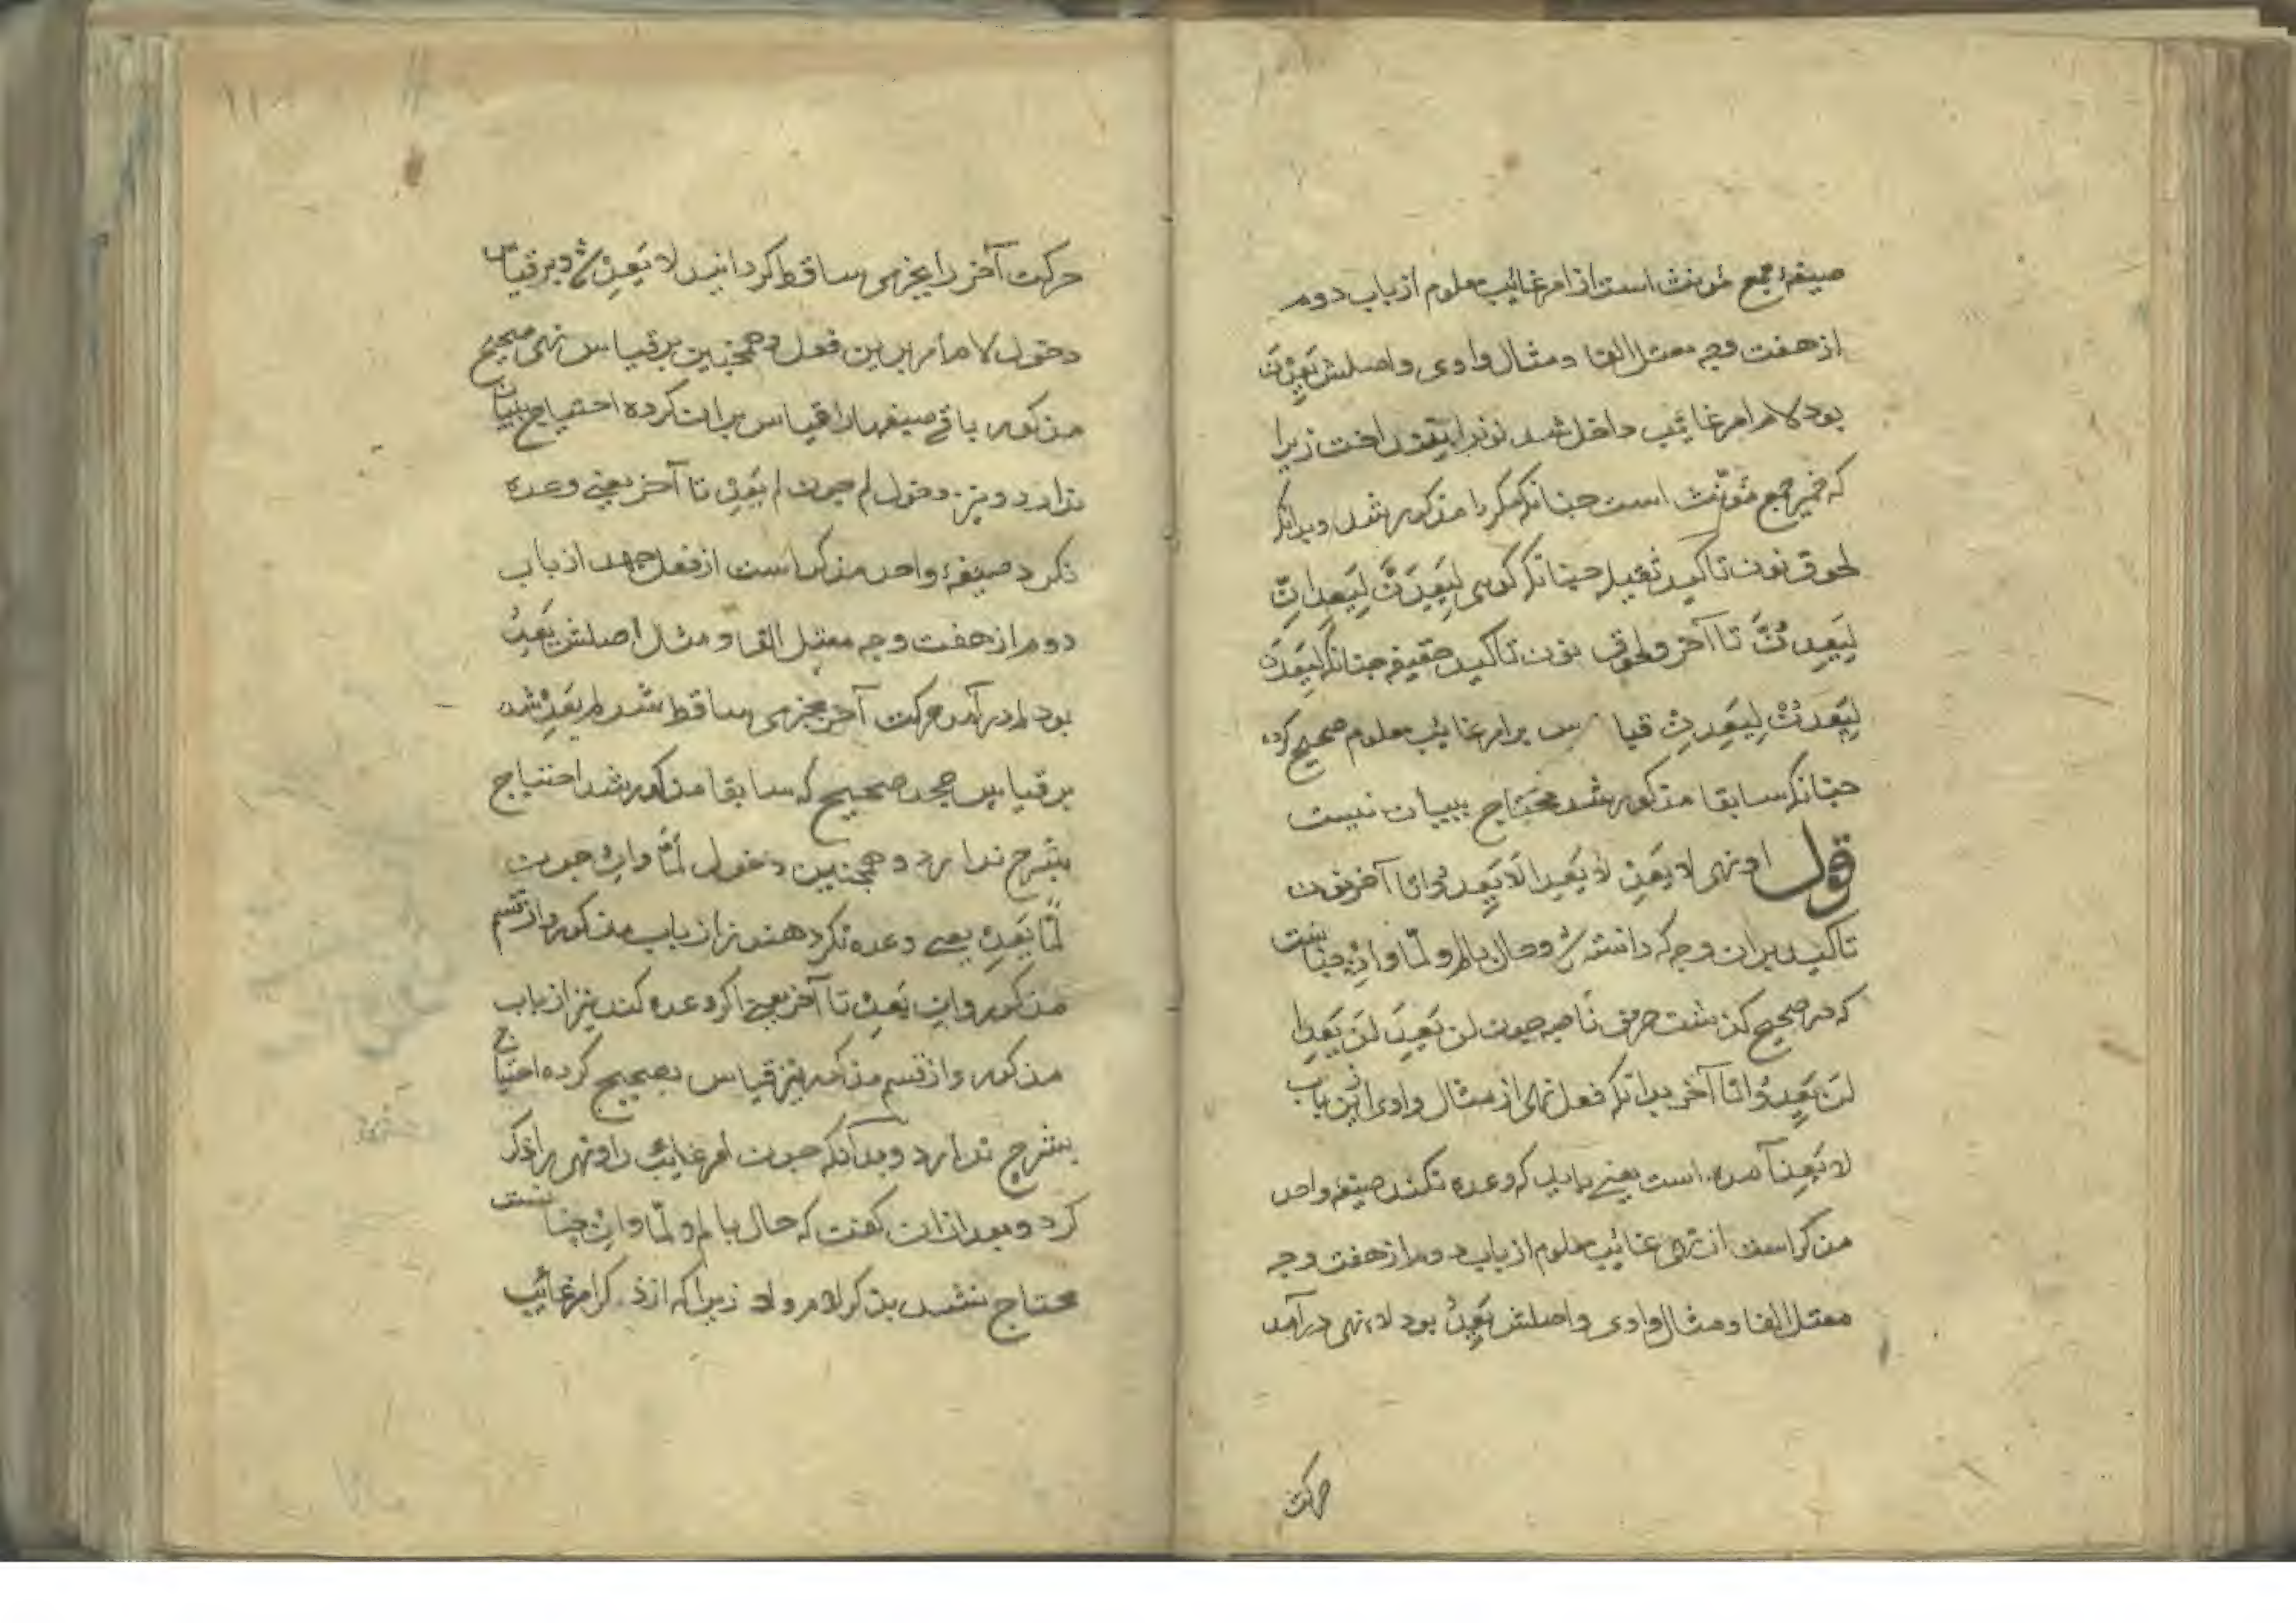 صیغهٔ جمع مؤنث است از امر غائب معلوم از باب دوم
از هفت وجه معتل الفا و مثال واوی و اصلش یَعِدْنَ
بود لام امر غائب داخل شد نونرا نینداخت زیرا
که ضمیر جمع مؤنث است چنانکه مکررا مذکور شد و بدانکه
لحوق نون تاکید ثقیله چنانکه کوی لِیَعِدَنَّ لِیَعِدانِّ
لِیَعِدُنَّ تا آخر و لحوق نون تاکید خفیفه چنانکه لِیَعِدَنْ
لِیَعِدُنْ لِیَعِدِنْ قیاس بر امر غائب معلوم صحیح کرده
چنانکه سابقا مذکور شد محتاج ببیان نیست
قول او نهی لا یَعِدْ لا یَعِدا لا یَعِدُوا تا آخر نون
تاکید بران وجه که دانسته شد و حال بالم و لمّا و اِنْ چنانست
که در صحیح کذشت حرف ناصبه چون لن یَعِدَ لَن یَعِدا
لَن یَعِدُوا تا آخر بدانکه فعل نهی از مثال واوی ازین باب
لا یَعِدْ آمده است یعنے باید که وعده نکند صیغهٔ واحد
مذکر است از نهی غائب معلوم از باب دوم از هفت وجه
معتل الفا و مثال واوی و اصلش یَعِدُ بود لاء نهی درآمد
حرکت
حرکت آخر را بجزمی ساقط کردانید لا یَعِدْ شد و بر قیاس
دخول لام امر برین فعل و همچنین بر قیاس نهی صحیح
مذکور باقے صیغهارا قیاس بران کرده احتیاج ببیان
ندارد و نیز دخول لم چون لم یَعِدْ تا آخر یعنے وعده
نکرد صیغهٔ واحد مذکر است از فعل جحد از باب
دوم از هفت وجه معتل الفا و مثال اصلش یَعِدُ
بود لم درآمد حرکت آخر بجزمی ساقط شد لم یَعِدْ شد
بر قیاس جحد صحیح که سابقا مذکور شد احتیاج
بشرح ندارد و همچنین دخول لَمّا و اِنْ چون
لَمّا یَعِدْ یعنے وعده نکرد هنوز از باب مذکور و از قسم
مذکور و ان یَعِدْ تا آخر یعنے اکر وعده کند نیز از باب
مذکور و از قسم مذکور نیز قیاس بصحیح کرده احتیاج
بشرح ندارد و بدآنکه چون امر غائب را و نهی را ذکر
کرد و بعد ازان کفت که حال با لم و لمّا و اِنْ چنانست
محتاج نشد بذکر لام و لا زیرا که از ذکر امر غائب